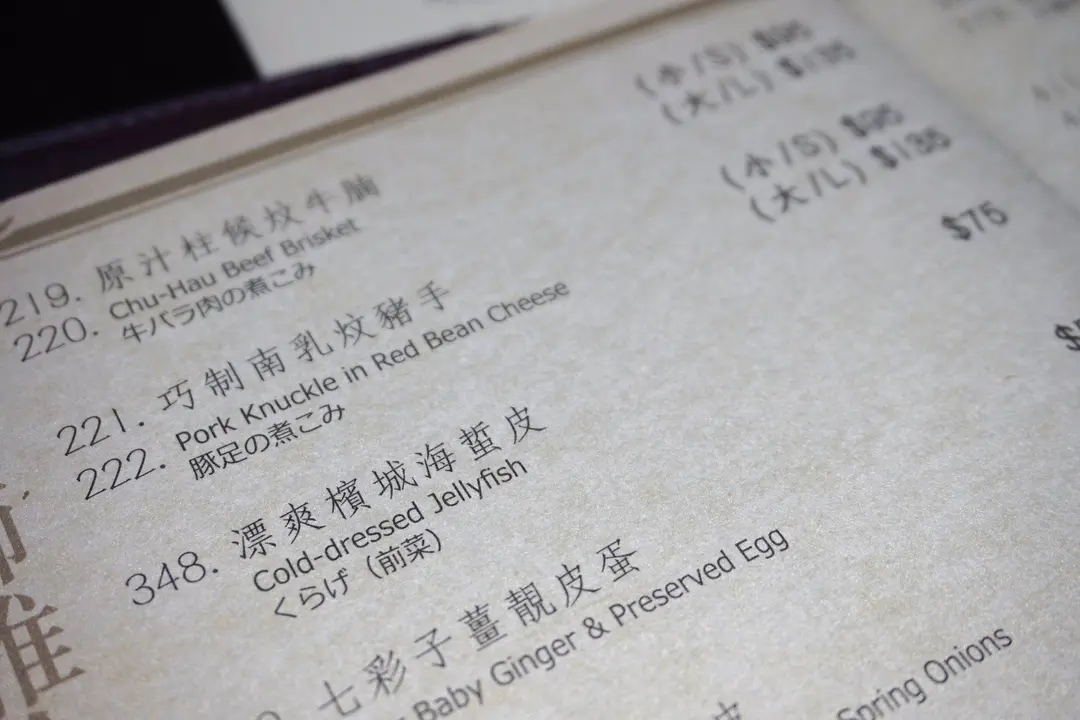 219. 原汁柱候炆牛腩 (小/S) $95
220. Chu-Hau Beef Brisket (大/L) $135
牛バラ肉の煮こみ
221. 巧制南乳炆豬手 (小/S) $95
222. Pork Knuckle in Red Bean Cheese (大/L) $135
豚足の煮こみ
348. 漂爽檳城海蜇皮 $75
Cold-dressed Jellyfish
くらげ（前菜）
七彩子薑靚皮蛋
Baby Ginger & Preserved Egg
皮
Spring Onions